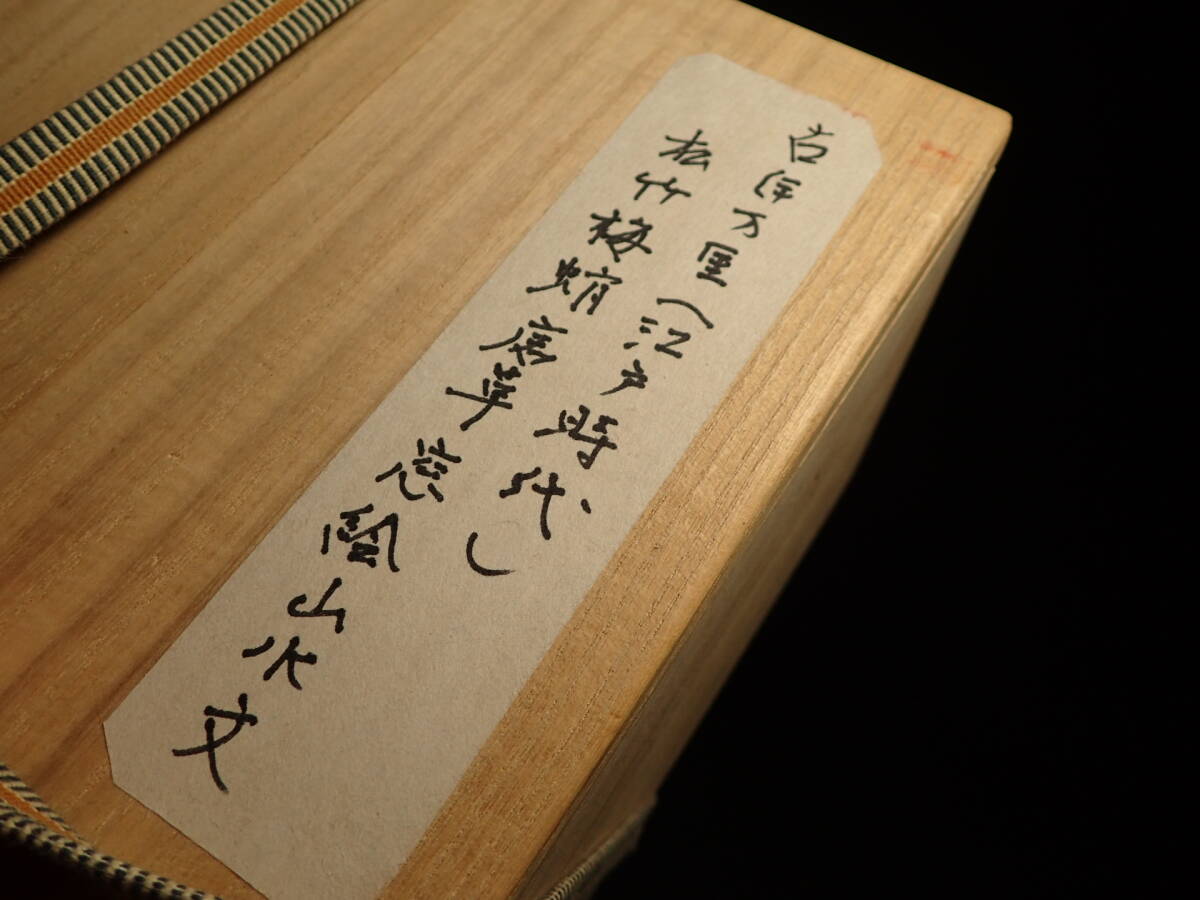 古伊万里(江戸時代)
松竹梅蛸唐草窓山水文